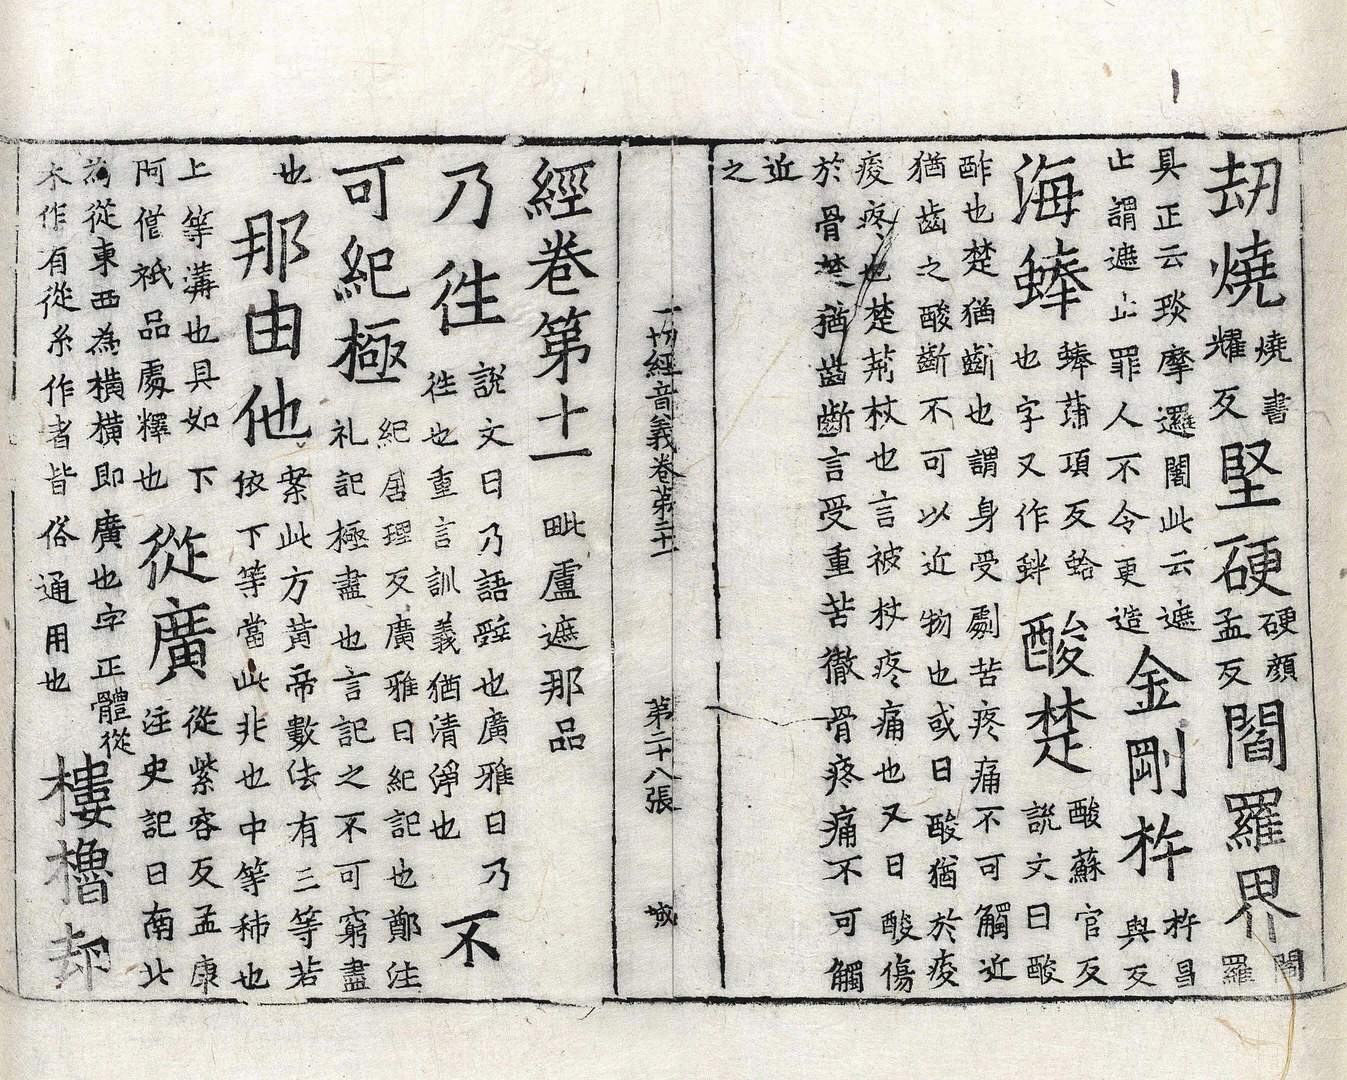 劫燒燒書耀反堅硬硬顏孟反閻羅界閻羅
具正云琰摩邏闍此云遮止謂遮止罪人不令更造金剛杵杵昌與反
海蜯蜯蒲項反蛤也字又作蚌酸楚酸蘇官反說文曰酸
酢也楚猶齭也謂身受劇苦疼痛不可觸近猶齒之酸齭不可以近物也或曰酸猶於痠
痠疼也楚荊杖也言被杖疼痛也又曰酸傷於骨楚猶齒齭言受重苦徹骨疼痛不可觸
近之
一切經音義卷第二十一 第二十八張 城
經卷第十一毗盧遮那品
乃往說文曰乃語辝也廣雅曰乃往也重言訓義猶清淨也不
可紀極紀居理反廣雅曰紀記也鄭注礼記極盡也言記之不可窮盡
也那由他案此方黃帝數法有三等若依下等當此非也中等秭也
上等溝也具如下阿僧祇品處釋也從廣從紫容反孟康注史記曰南北
為從東西為橫橫即廣也字正體從木作有從糸作者皆俗通用也樓櫓却